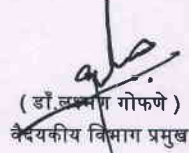 ( डॉ. लक्ष्मण गोफणे )
वैदयकीय विभाग प्रमुख